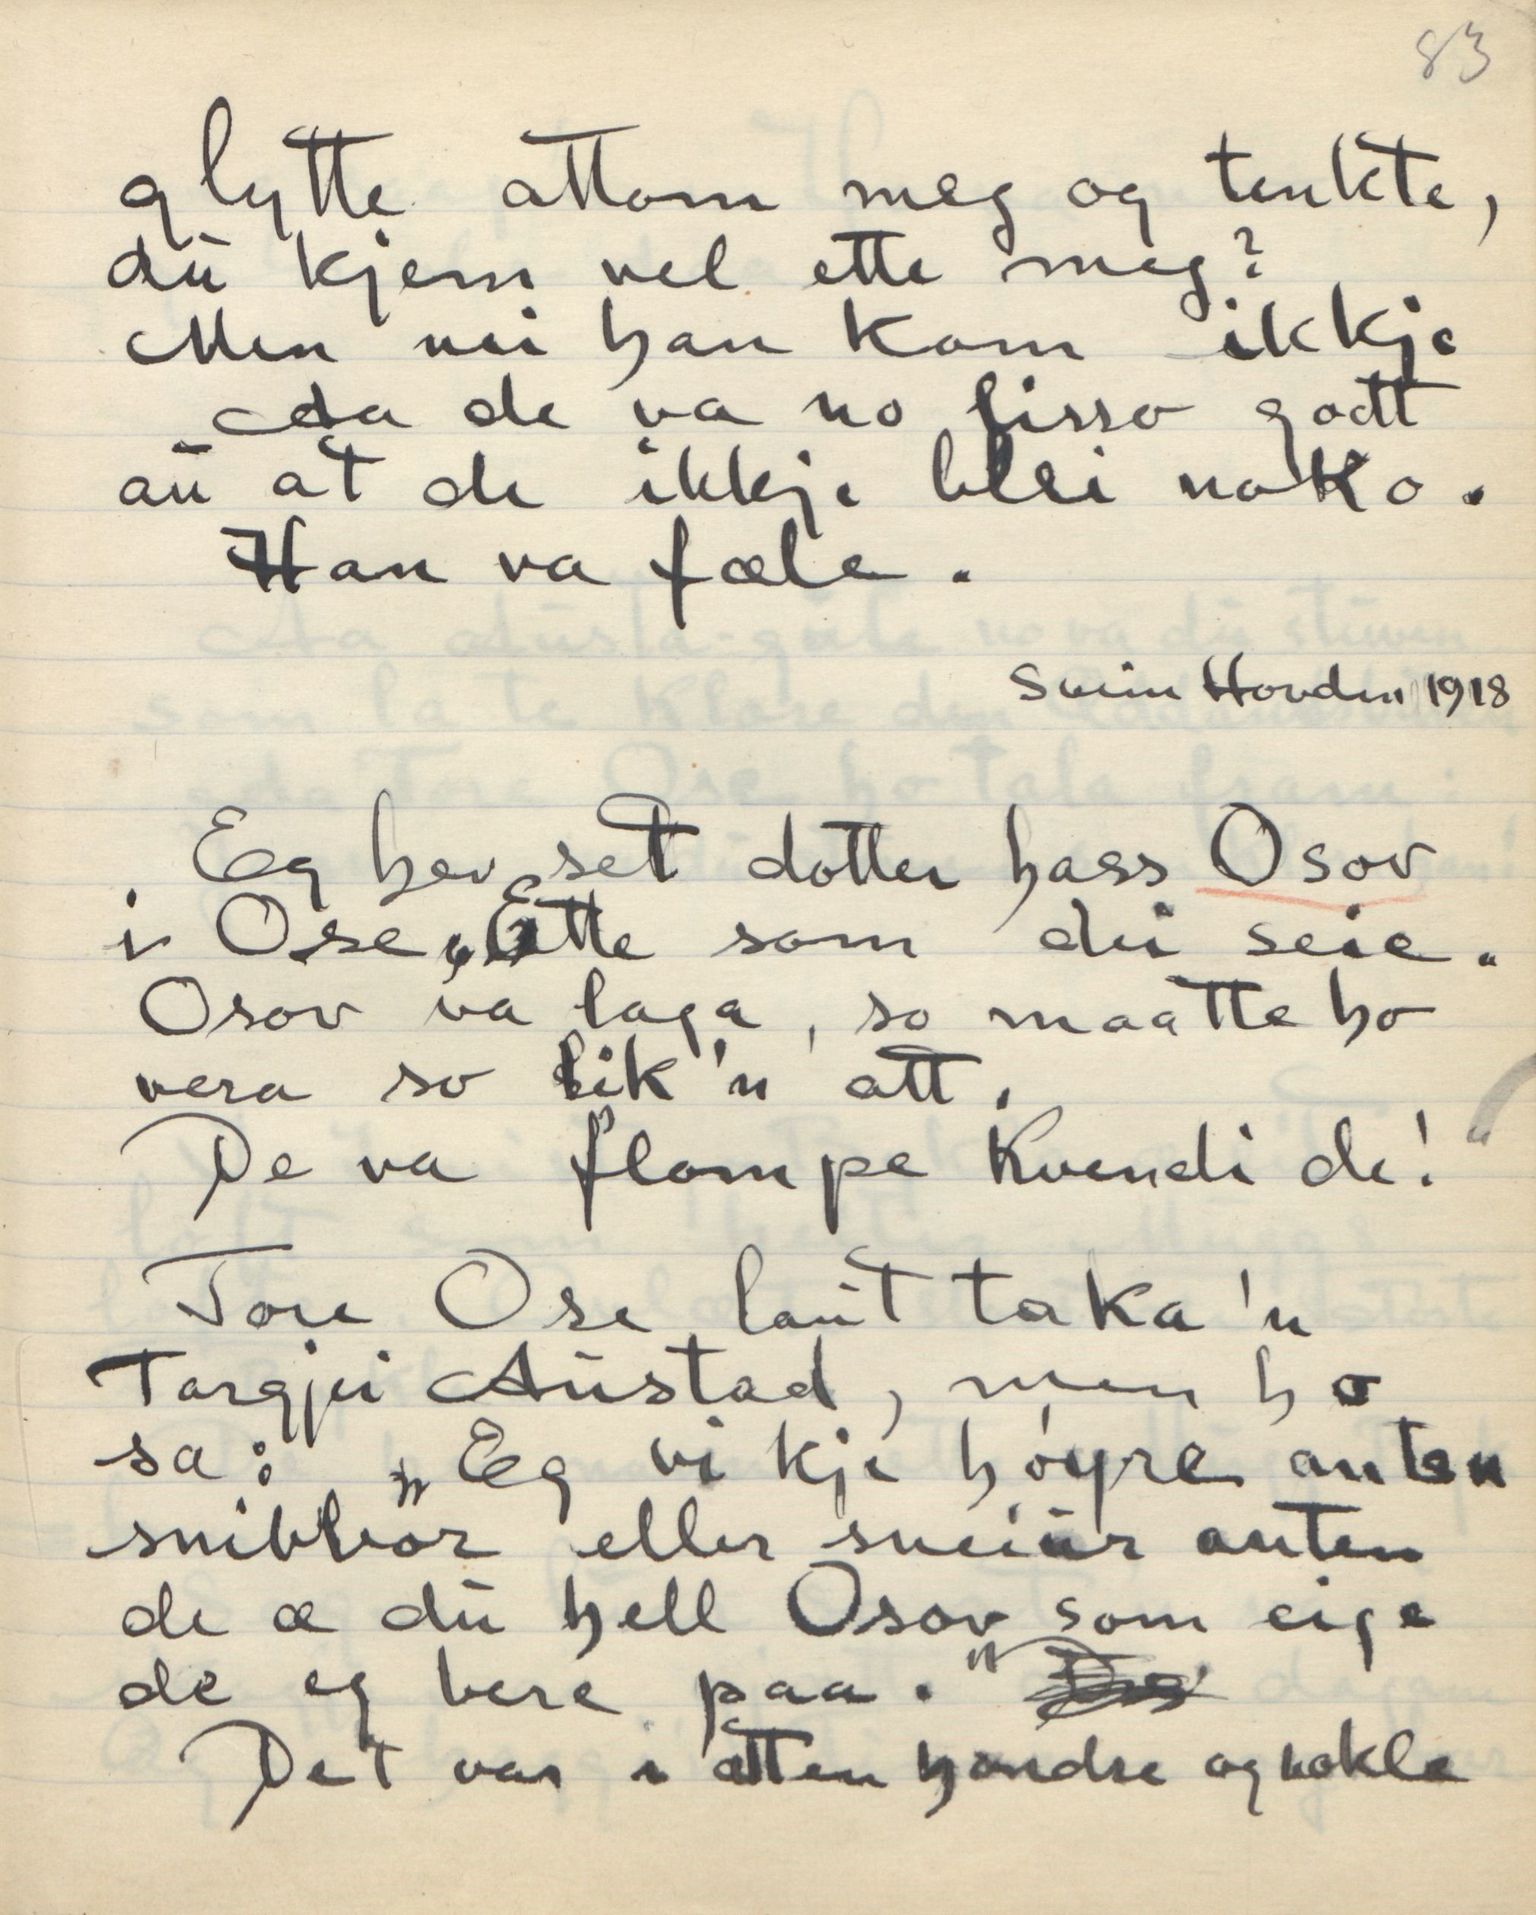 83
glytte attom meg og tenkte,
du kjem vel ette meg?
Men nei han kom ikkje
Aa de va no lisso godt
au at de ikkje blei noko.
Han va fæle.
Svein Hovden 1918
Eg hev set dotter hass Osov
i Ose. Ette som dei seie.
Osov va laga, so maatte ho
vera so lik 'n att.
De va flompe Kvendi de!"
Tore Ose laut taka 'n
Targjei Austad, men ho
sa: „Eg vi kje høyre anten
snibbor eller sneiur anten
de æ du hell Osov som eige
de eg bere paa."
Det var i atten hondre og nokle